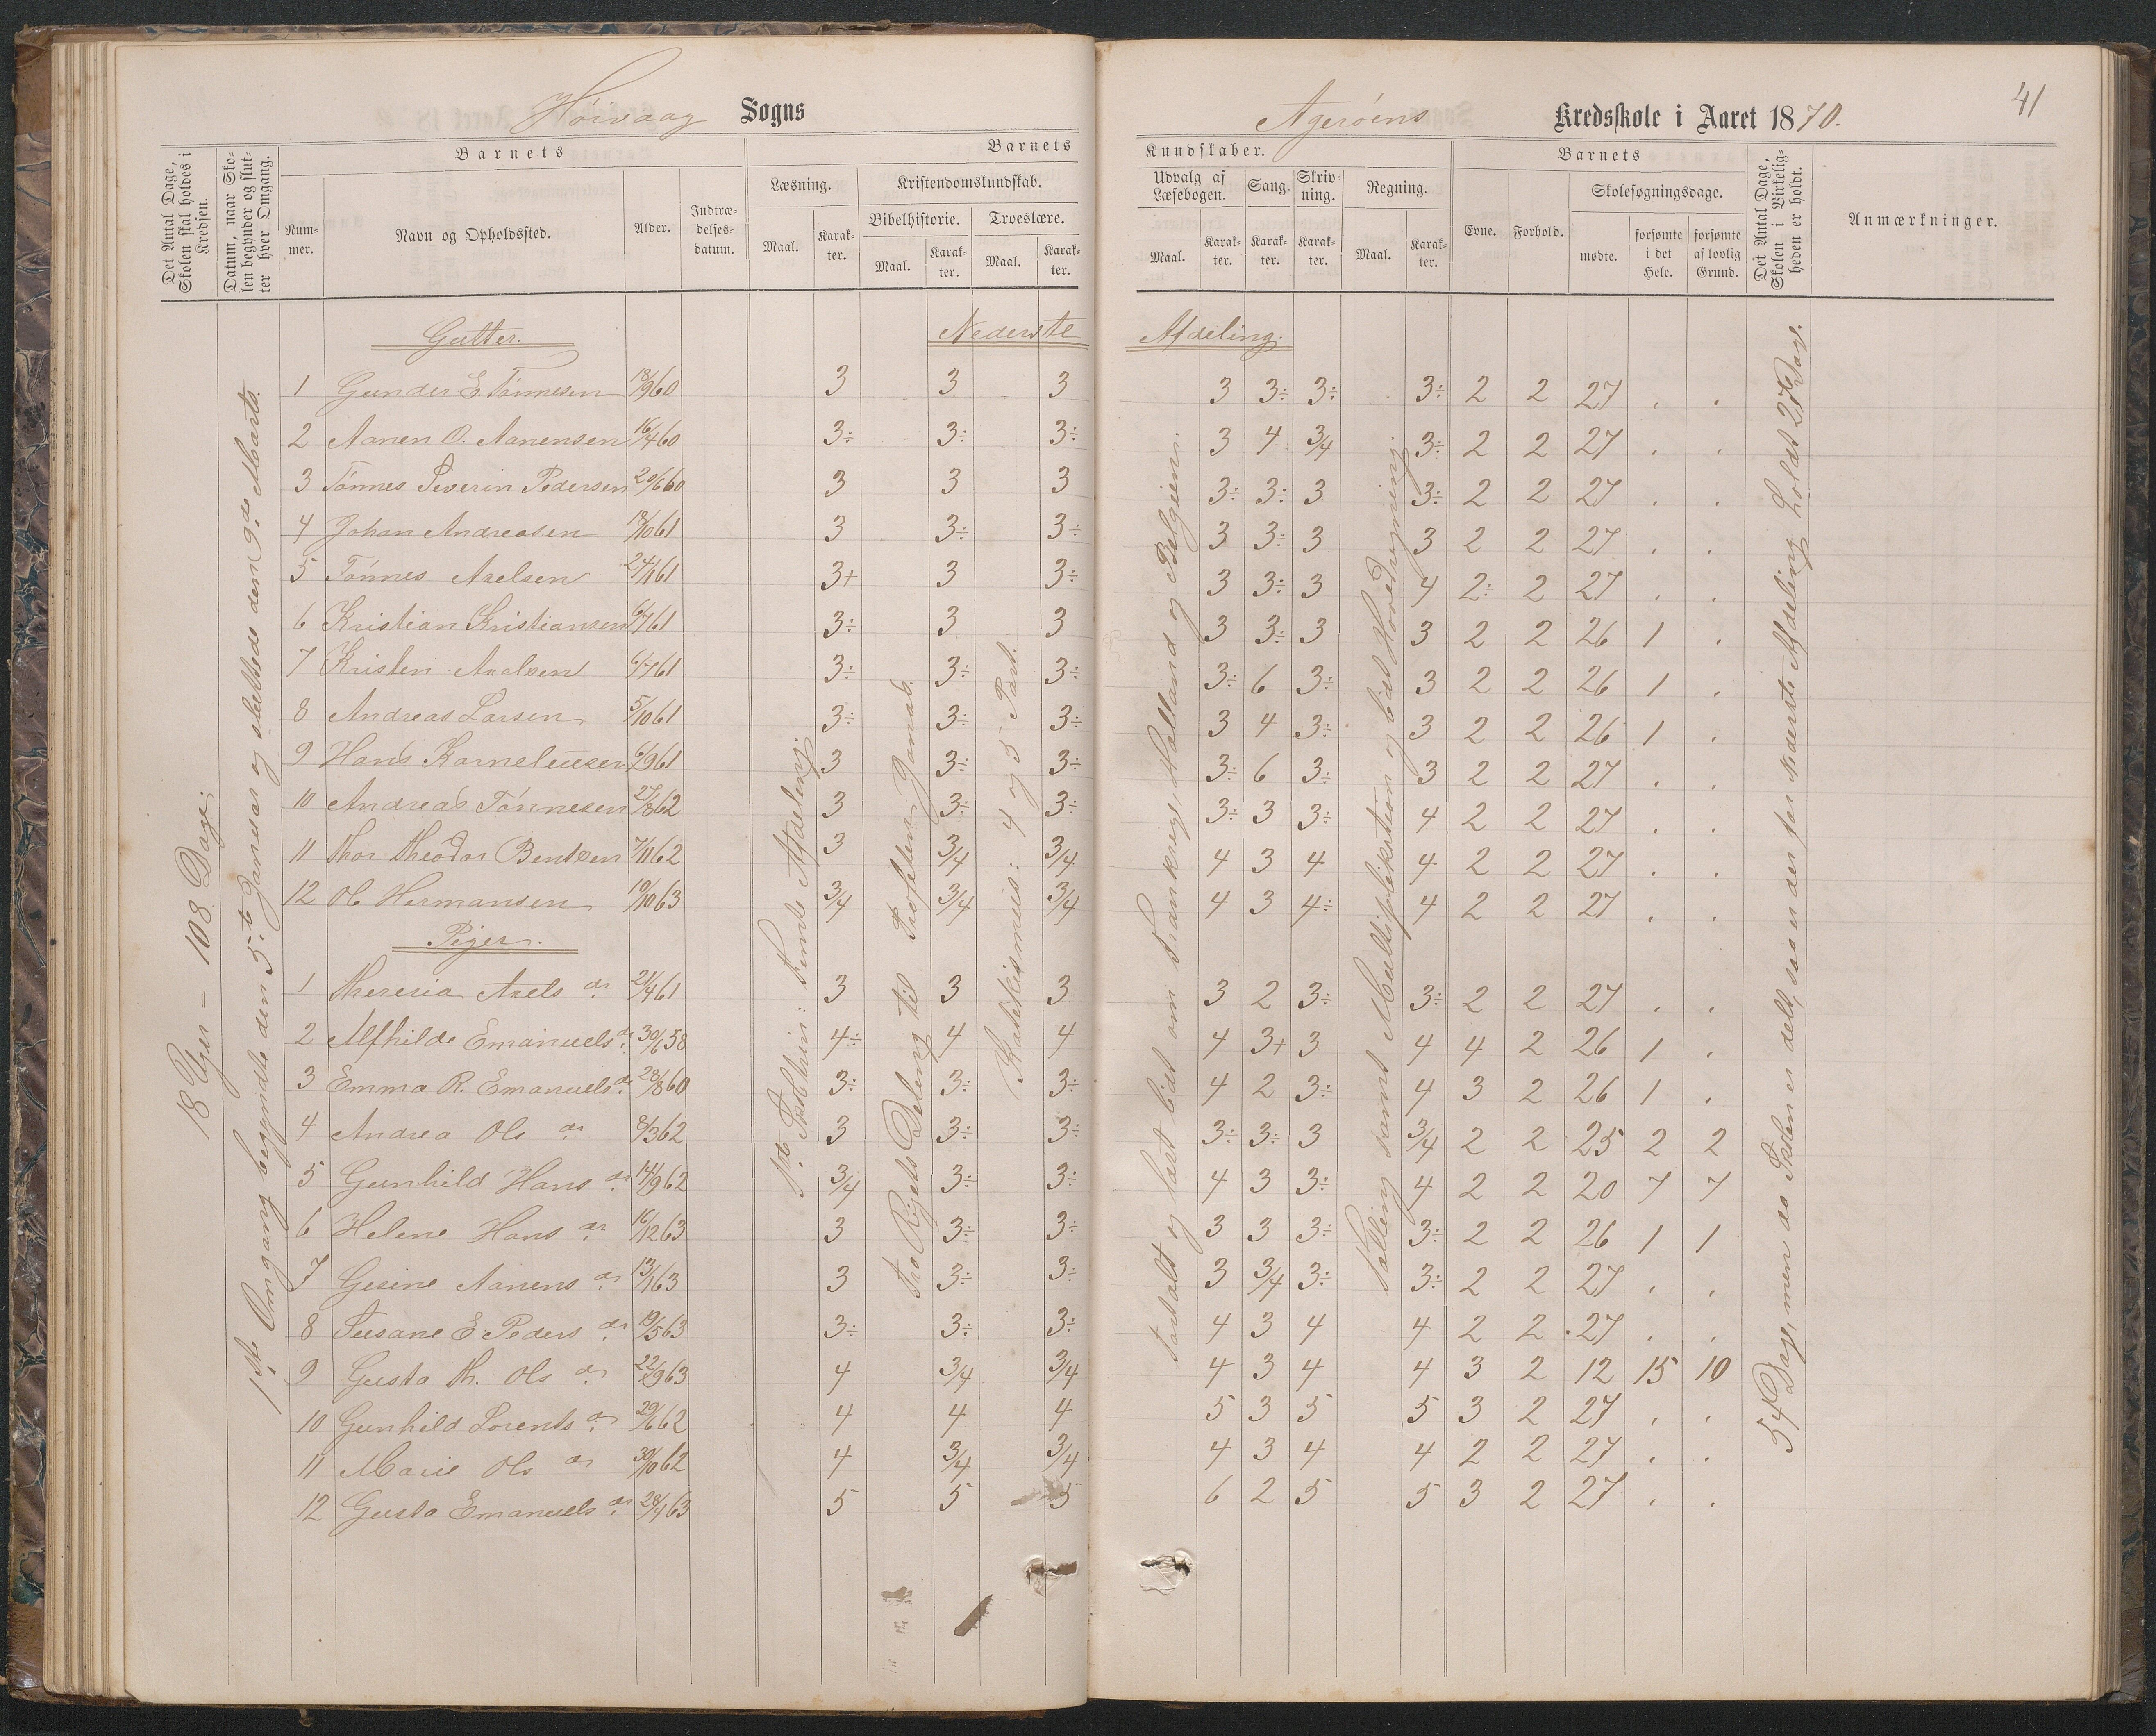 Høivaag Sogns
Agerøens Kredsskole i Aaret 1870.
41
Det Antal Dage, Skolen skal holdes i Kredsen.
Datum, naar Skolen begynder og slutter hver Omgang.
Barnets
Nummer.
Navn og Opholdssted.
Alder.
Indtrædelsesdatum.
Barnets
Læsning.
Maal.
Karakter.
Kristendomskundskab.
Bibelhistorie.
Maal.
Karakter.
Troeslære.
Maal.
Karakter.
Kundskaber.
Udvalg af Læsebogen.
Maal.
Karakter.
Sang.
Karakter.
Skrivning.
Karakter.
Regning.
Maal.
Karakter.
Barnets
Evne.
Forhold.
Skolesøgningsdage.
mødte.
forsømte i det Hele.
forsømte af lovlig Grund.
Det Antal Dage, Skolen i Virkeligheden er holdt.
Anmærkninger.
18 Uger = 108 Dage.
1ste Omgang begyndte den 5te Januar og sluttede den 9de Marts.
1ste Skoletrin: Femte Afdeling.
Fra Rigets Deling til Profeten Jonas.
Katekismus: 4 og 5 Part.
Fortalt og læst lidt om Frankrig, Holland og Belgien.
Tælling samt Multiplikation og lidt Hovedregning.
54 Dage, men da Skolen er delt, saa er der for Nederste Afdeling holdt 27 Dage.
Gutter. Nederste Afdeling.
1 Gunder E. Tønnesen 18/9 60 3 3 3 3 3÷ 3÷ 3÷ 2 2 27 . .
2 Aanen O. Aanensen 16/4 60 3÷ 3÷ 3÷ 3 4 3/4 3÷ 2 2 27 . .
3 Tønnes Severin Pedersen 20/6 60 3 3 3 3÷ 3÷ 3 3÷ 2 2 27 . .
4 Johan Andreasen 18/10 61 3 3÷ 3÷ 3 3÷ 3 3 2 2 27 . .
5 Tønnes Axelsen 24/1 61 3+ 3 3÷ 3 3÷ 3 4 2÷ 2 27 . .
6 Kristian Kristiansen 6/7 61 3÷ 3 3 3 3÷ 3 3 2 2 26 1 .
7 Kristen Axelsen 6/7 61 3÷ 3÷ 3÷ 3÷ 6 3÷ 3 2 2 26 1 .
8 Andreas Larsen 5/10 61 3÷ 3÷ 3÷ 3 4 3÷ 3 2 2 26 1 .
9 Hans Korneliussen 6/9 61 3 3÷ 3÷ 3÷ 6 3÷ 3 2 2 27 . .
10 Andreas Tønnesen 27/8 62 3 3÷ 3÷ 3÷ 3 3÷ 4 2 2 27 . .
11 Thor Theodor Bentsen 7/11 62 3 3/4 3/4 4 3 4 4 2 2 27 . .
12 Ole Hermansen 19/10 63 3/4 3/4 3/4 4 3 4÷ 4 2 2 27 . .
Piger.
1 Theresia Axelsdr. 21/4 61 3 3 3 3 2 3÷ 3÷ 2 2 27 . .
2 Alfhilde Emanuelsdr. 30/6 58 4÷ 4 4 4 3+ 3 4 4 2 26 1 .
3 Emma R. Emanuelsdr. 28/8 60 3÷ 3÷ 3÷ 4 2 3÷ 4 3 2 26 1 .
4 Andrea Olsdr. 8/3 62 3 3÷ 3÷ 3÷ 3÷ 3 3/4 2 2 25 2 2
5 Gunhild Hansdr. 14/9 62 3/4 3÷ 3÷ 4 3 3÷ 4 2 2 20 7 7
6 Helene Hansdr. 16/12 63 3 3÷ 3÷ 3 3 3÷ 3÷ 2 2 26 1 1
7 Gesine Aanensdr. 13/1 63 3 3÷ 3÷ 3 3/4 3÷ 3÷ 2 2 27 . .
8 Susane E. Pedersdr. 19/5 63 3÷ 3÷ 3÷ 4 3 4 4 2 2 27 . .
9 Gusta Th. Olsdr. 22/9 63 4 3/4 3/4 4 3 4 4 3 2 12 15 10
10 Gunhild Lorentsdr. 29/6 62 4 4 4 5 3 5 5 3 2 27 . .
11 Marie Olsdr. 30/10 62 4 3/4 3/4 4 3 4 4 2 2 27 . .
12 Gusta Emanuelsdr. 28/4 63 5 5 5 6 2 5 5 3 2 27 . .